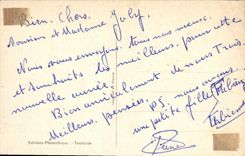 Bien Chers
Monsieur et Madame July.
Nous vous envoyons tous nos vœux
et souhaits des meilleurs pour cette
nouvelle année.
Bien amicalement de nous Trois
Meilleures pensées ps. nous avons
une petite fille
Editions Photochrom - Toulouse